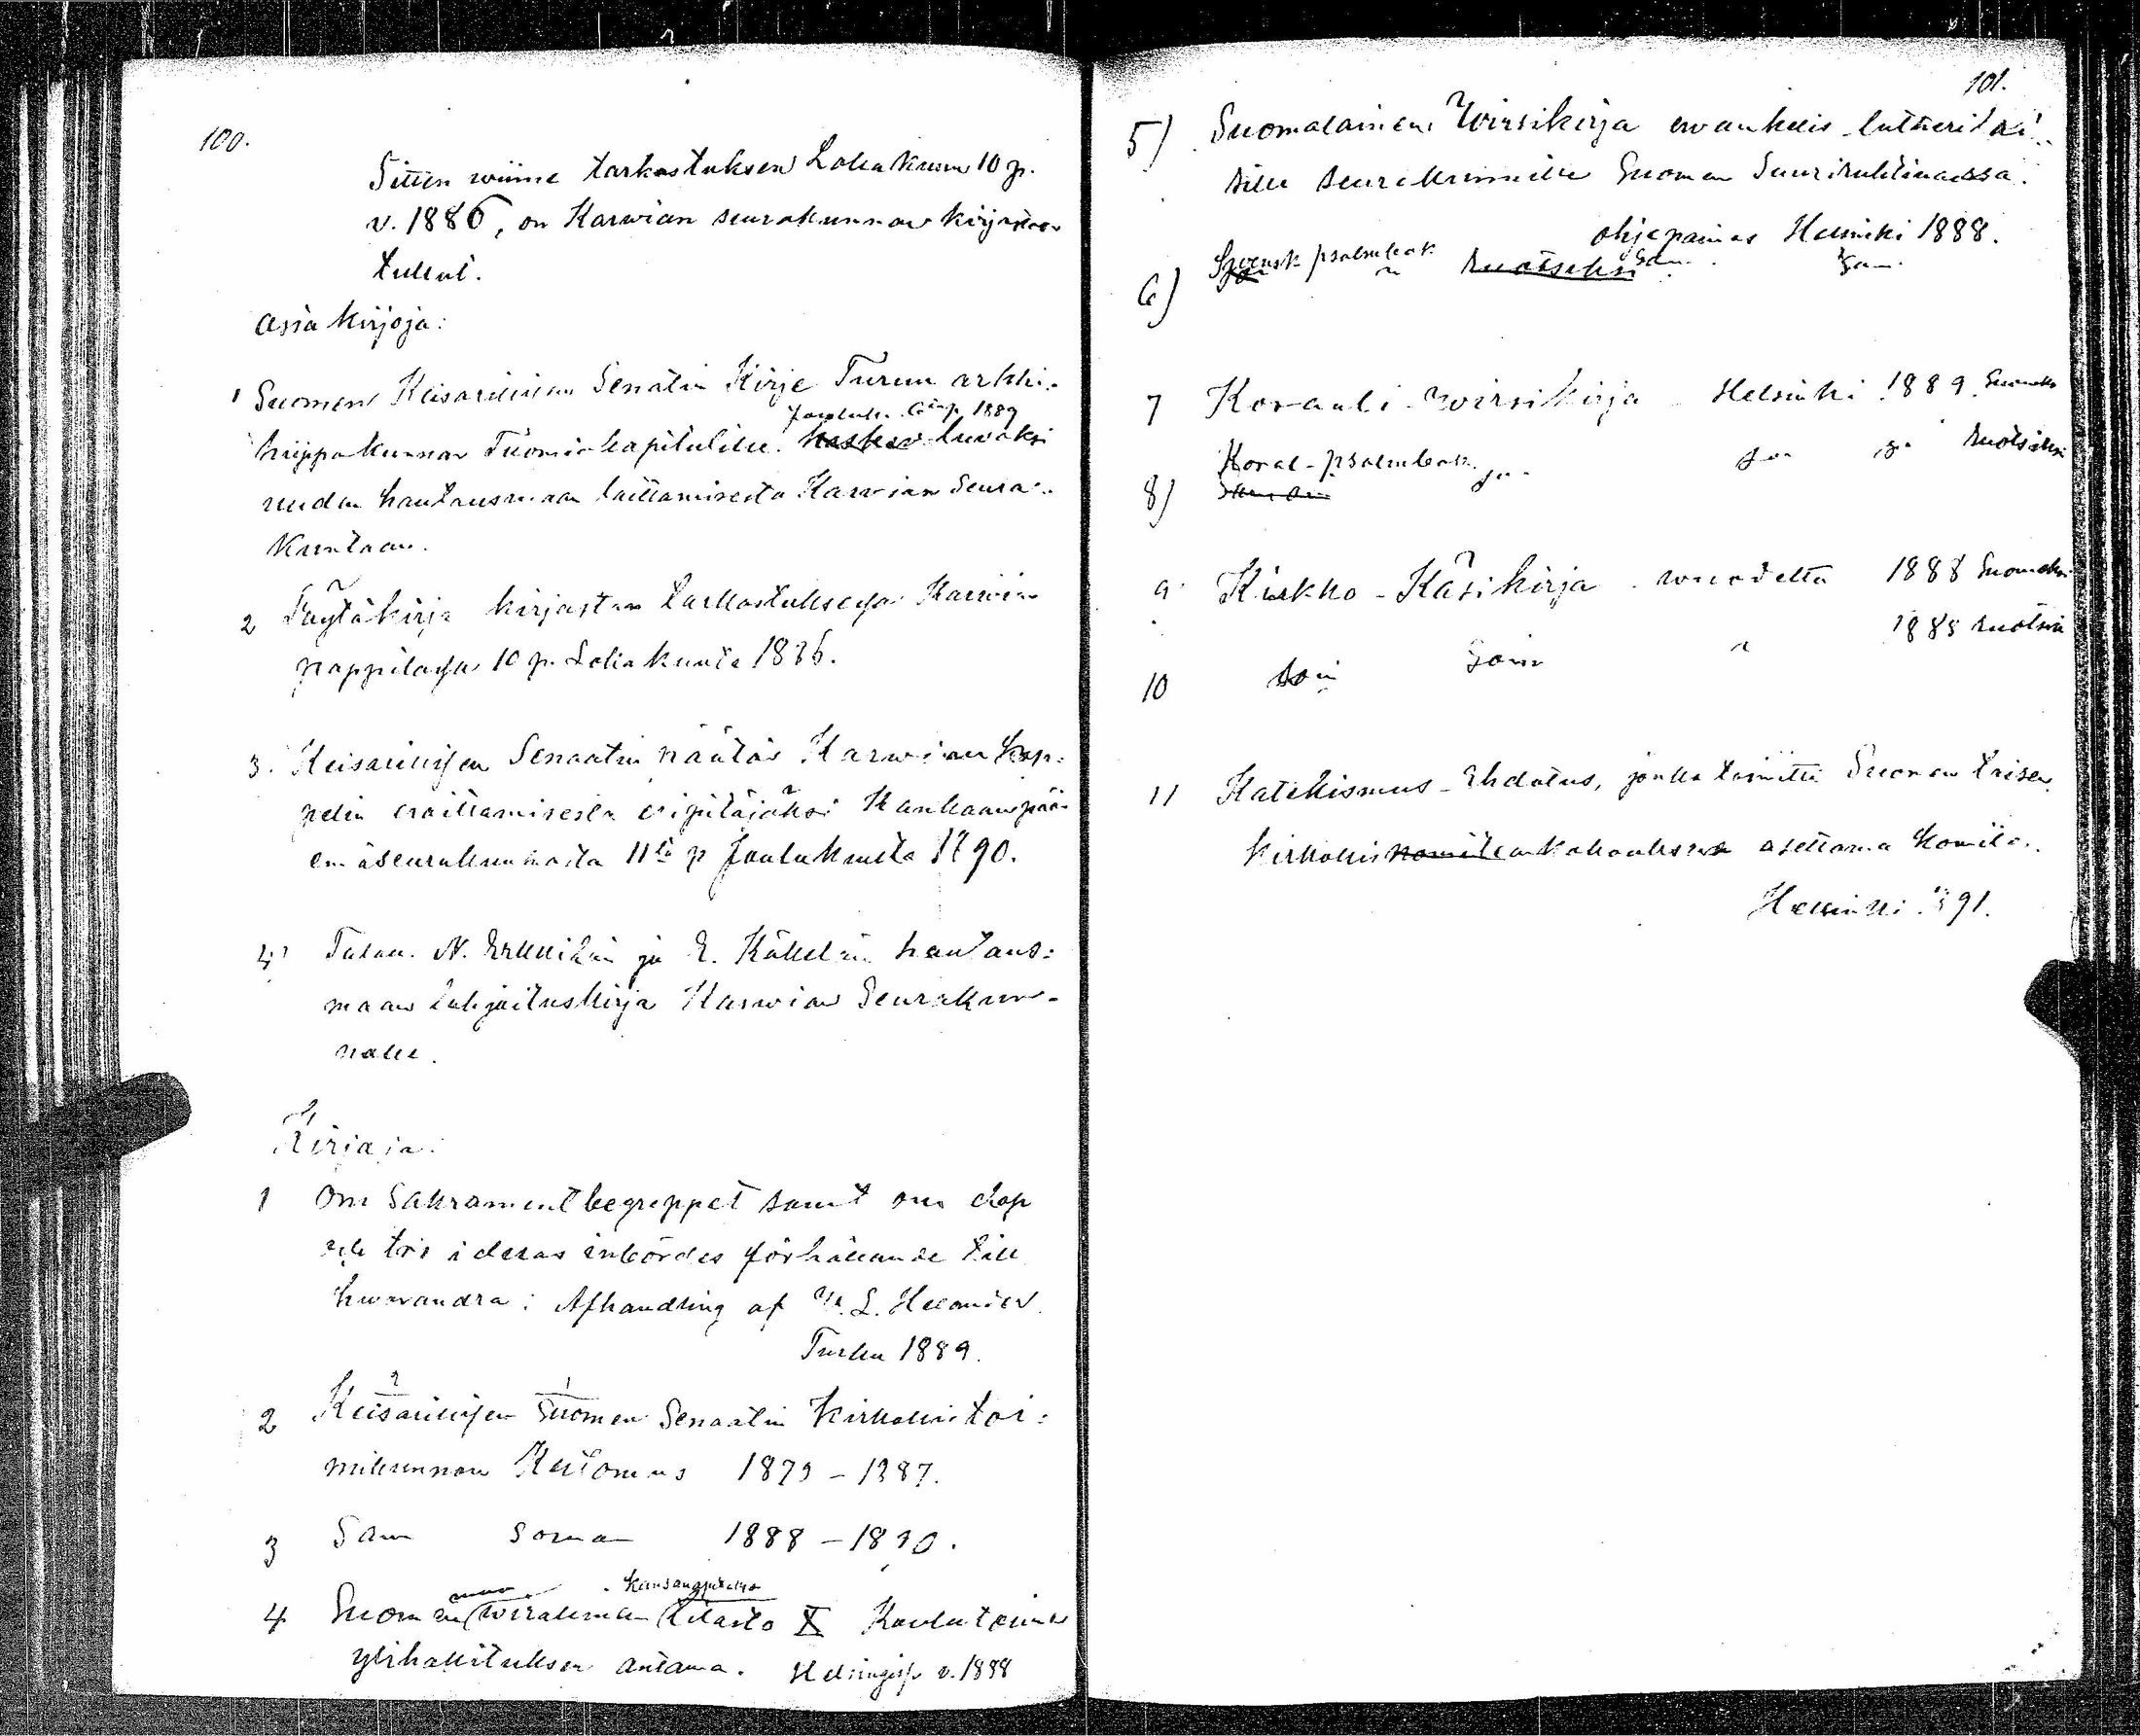 100.
Sitten wiime tarkastuksen Lokakuun 10 p.
v. 1886, on Karwian seurakunnan kirjastoon
tullut.
Asiakirjoja:
1 Suomen Keisarillisen Senatin Kirje Turun arkki-
Jouluk. 1889
hiippakunnan Tuomiokapitulille. koskeva luvaksi
uuden hautausmaan laittamisesta Karwian Seura-
kuntaan.
2 Pöytäkirja kirjaston tarkastuksessa Karwian
pappilassa 10 p. Lokakuuta 1886.
3. Keisarillisen Senaatin päätös Karwian Kap-
pelin eroittamisesta eripitäjäksi Kankaanpään
emäseurakunnasta 11tä p Joulukuuta 1890.
4 Talon. N. ja E. hautaus-
maan lahjoituskirja Karwian Seurakun-
nalle.
Kirjoja:
1 Om Sakramentbegreppet samt om dop
och tro i deras inbördes förhållande till
hwarandra; Afhandling af
Turku 1889.
2 1
2 Keisarillisen Suomen Senaatin Kirkollistoi-
mikunnan Kertomus 1879 – 1887.
3 Sam Soma 1888 – 1890.
Kansanopetusta
4 Suomen wirallinen tilasto X Koulutoimen
ylihallituksen antama. Helsingiss v. 1888
101.
5) Suomalainen Wirsikirja ewankelis-lutherilai-
sille seurakunnille Suomen Suuriruhtinaassa.
ohjepainos Helsinki 1888.
6) Svensk psalmbok " Ruotseksi Sam. Sam
7 Koraali-wirsikirja Helsinki 1889 Suomeksi
Koral-psalmbok
8) Ruotsiksi
9 Kirkko-Käsikirja wuodelta 1888 Suomeksi
10 Som " 1888 Ruotsiksi
11 Katekismus-Ehdotus, jonka toimitti Suomen toisen
kirkollis komitean kokouksen asettama Komitea.
Helsinki 1891.